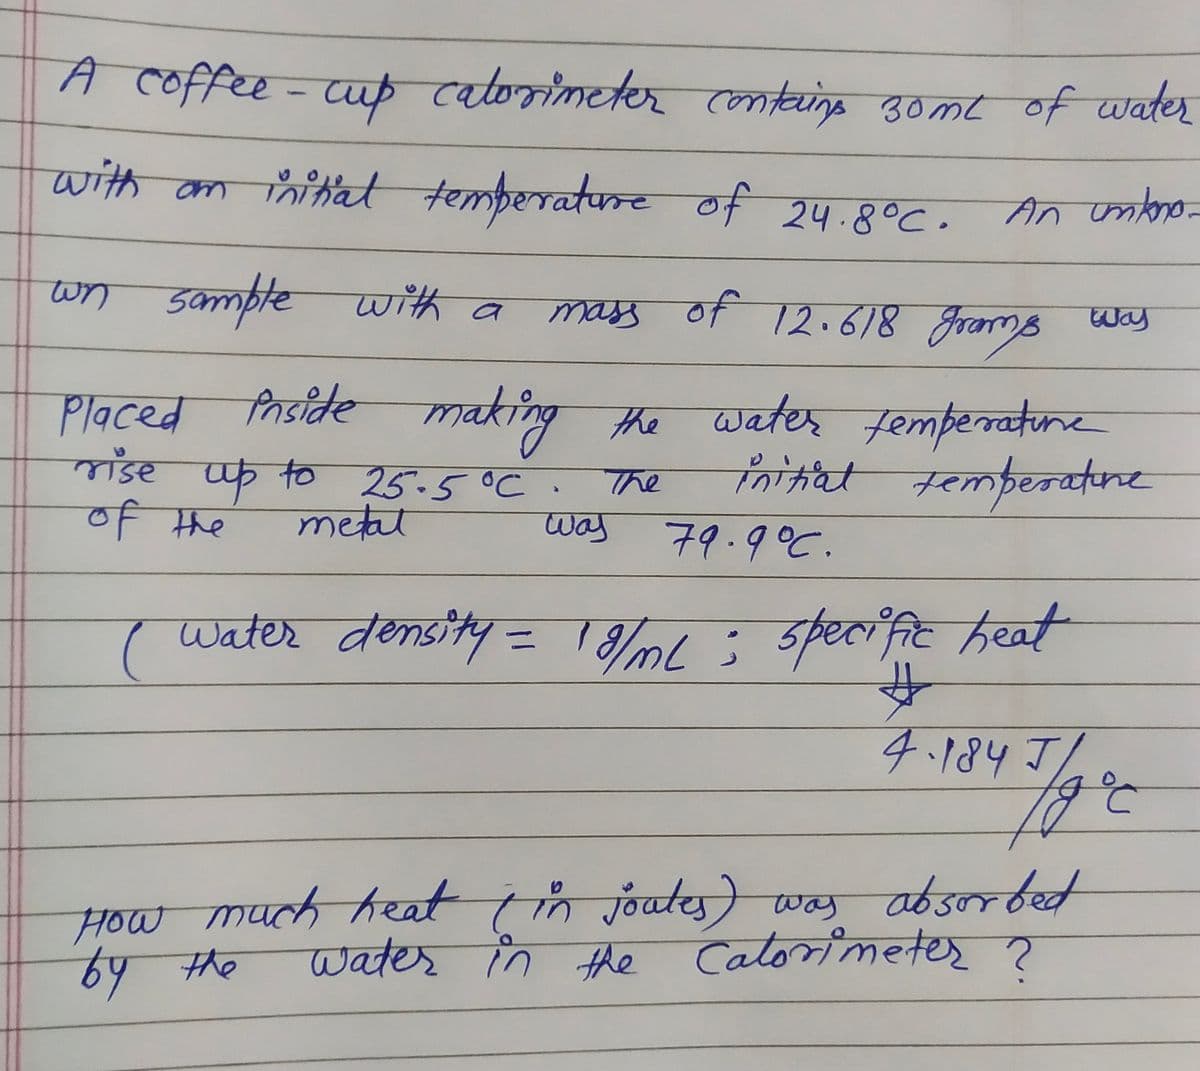 A coffee-cup calorimeter contains 30mL of water
with an initial temperature of 24.8°C. An unkno-
wn sample with a mass of 12.618 grams was
Placed inside making the water temperature
rise up to 25.5°C. The initial temperature
of the metal was 79.9°C.
(water density = 1g/mL; specific heat
⇓
4.184 J/g°C
How much heat (in joules) was absorbed
by the water in the Calorimeter?